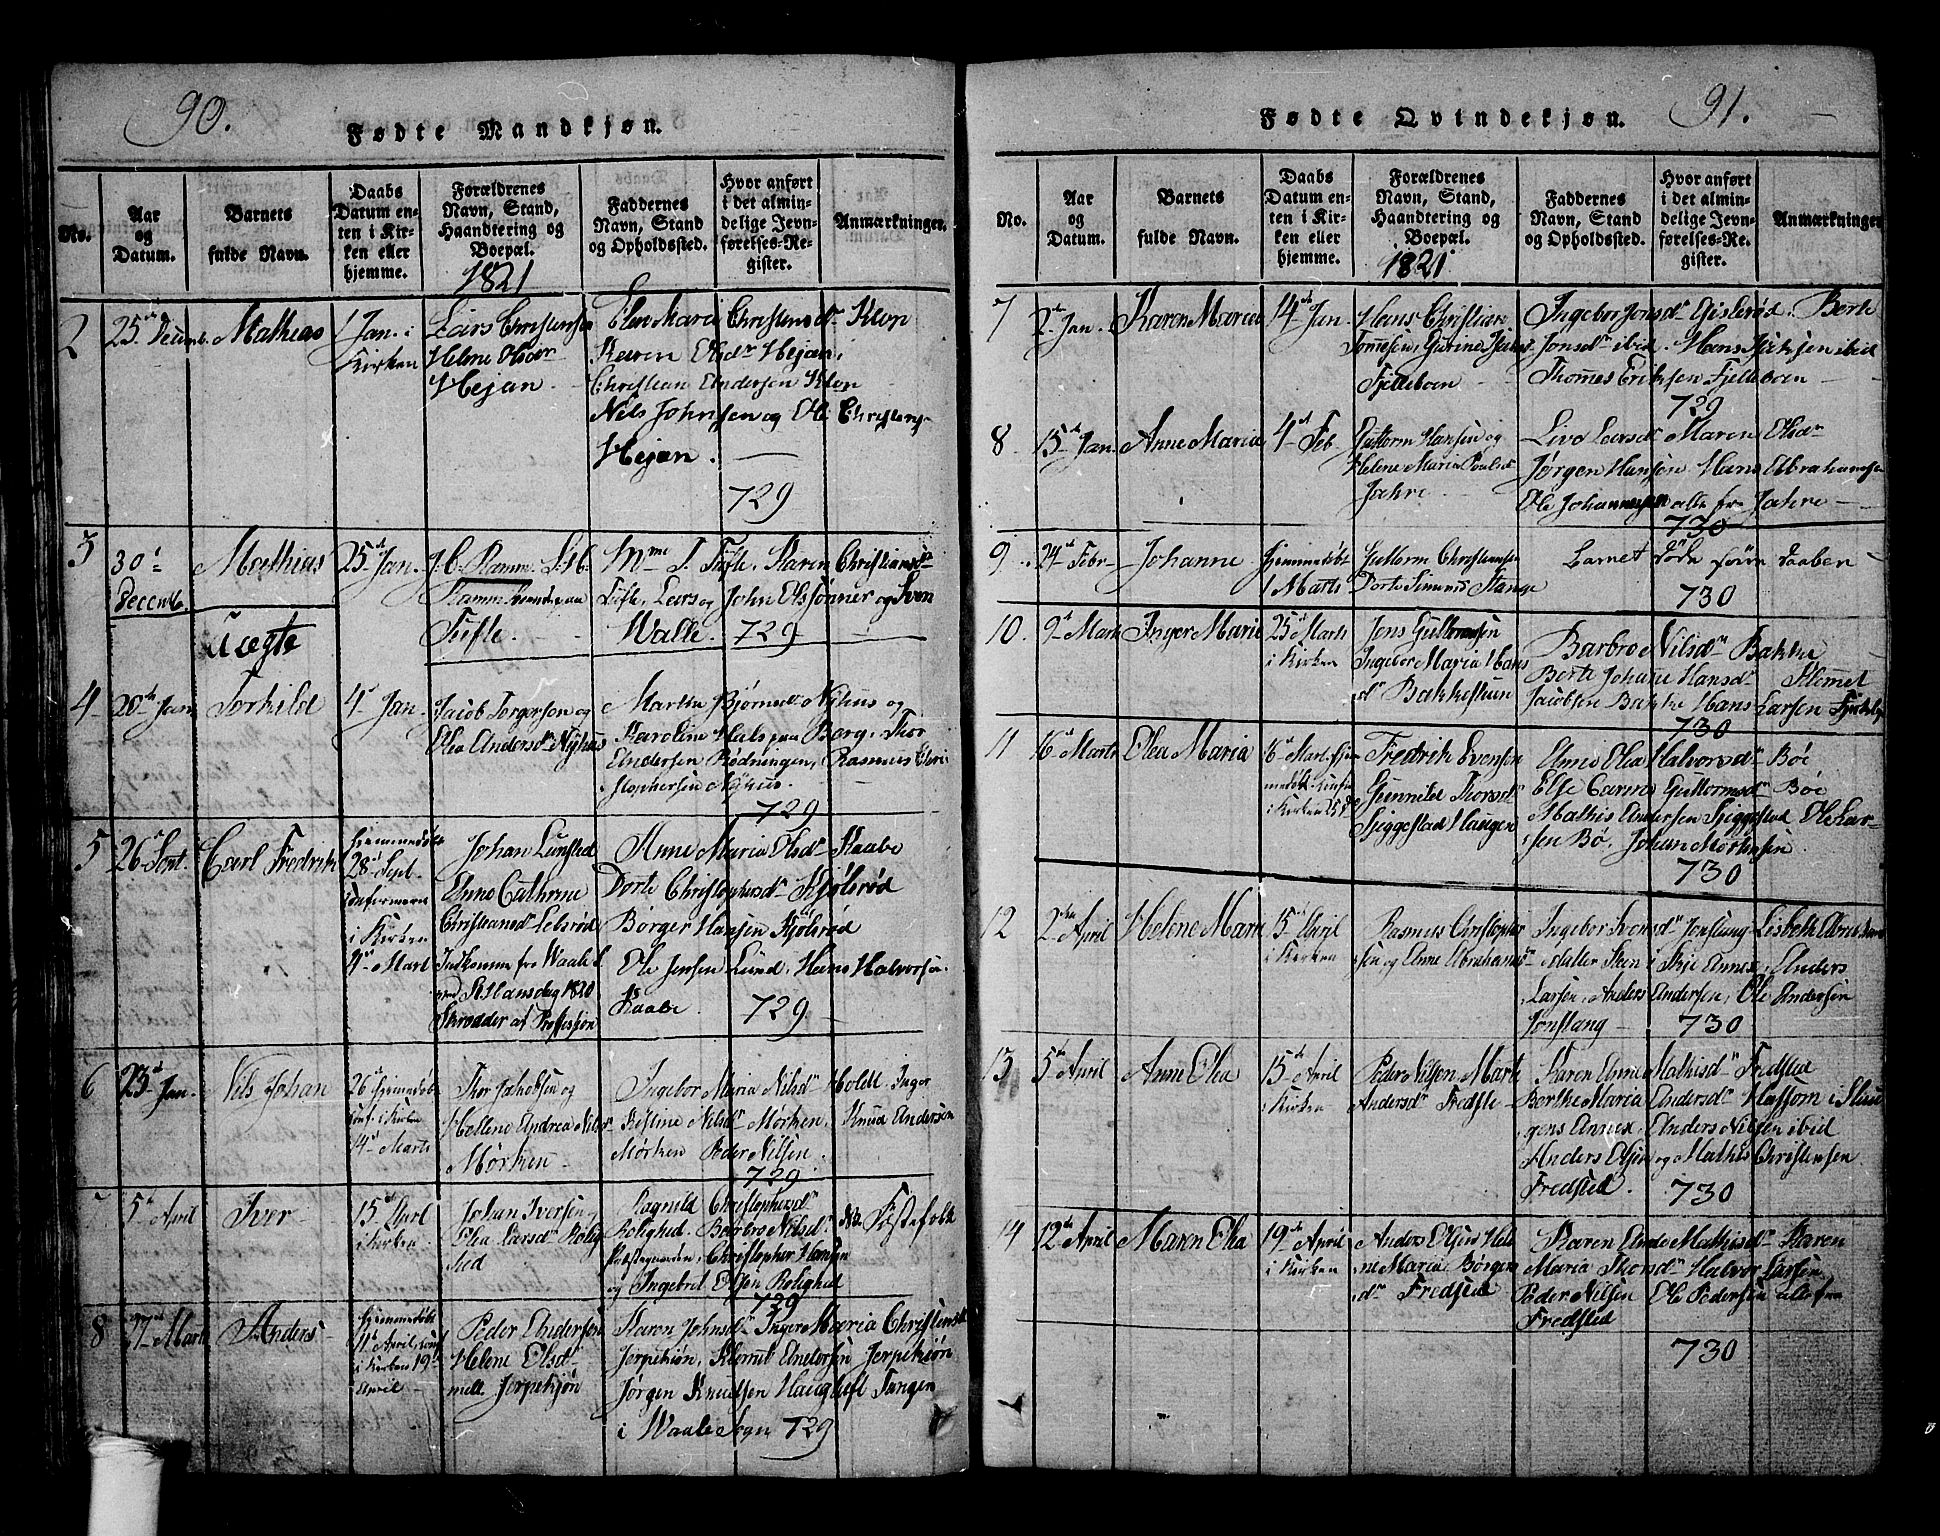 90.
Fødte Mandkjøn.
No.
Aar og Datum.
Barnets fulde Navn.
Daabs Datum enten i Kirken eller hjemme.
Forældrenes Navn, Stand, Haandtering og Boepæl.
Faddernes Navn, Stand og Opholdssted.
Hvor anført i det almindelige Jevnførelses-Register.
Anmærkninger.
1821
2
25de Decemb.
Mathias
1 Jan. i
Kirken
Lars Christensen
Helene
Hejan.
Elen Maria Christensdr Klop
Karen Olsdr Hejan,
Christian Andersen Klop
Nils Johnsen og Ole Christens.
Hejan.
729
3
30
Decemb.
Mathias
Uægte
25de Jan.
Tufte.
Mme T. Tufte. Karen Christiansdr
Tufte, Lars og John Olssønner og Sven
Walle.
729
4
20de Jan
Torkild
4de Jan.
Jacob Torgersen og
Olea Andersdr Nyhus
Marthe Bjørnsdr Nyhus og
Karoline Hals paa Borg. Thor
Andersen Rødningen, Rasmus Chri-
stophersen Nyhus.
729
5
26de Sept.
Carl Fredrik
hjemmedøbt
28de Sept.
confirmeret
i Kirken
4de Mart
Johan Lunsted
Anne Cathrine
Christiansdr Lebsrød
Indkomne fra Waale
Skrædder af Profession
Anne Maria Olsdr Raabe
Dorte Christophersdr Kjølsrød
Børger Hansen Kjølsrød
Ole Jensen Lund, Hans Halvorsen
Raabe.
729
6
23de Jan.
Nils Johan
26de hjemmedøbt
conf. i Kirken
4de Marts
Thor Jakobsen og
Hellene Andrea Nilsdr
Mørken
Ingebor Maria Nilsdr Holdt. Inger
Kistine Nilsdr Mørken, Knud Andersen
Mørken Peder Nilsen.
729
7
5de April
Iver
15de April
i Kirken
Johan Iversen
Olea Larsdr Rolig-
hed
Ragnild Christophersdr
Rolighed. Barbro Nilsdr NB. Fæstefolk
Christopher Hansen
og Ingebret Olsen Rolighed
729
8
27de Marts
Anders
hjemmedøbt
11de April, conf
i Kirken 19de
April
Peder Andersen
Helene Olsdr
mell. Jerpekjøn
Karen Johnsdr Inger Maria Christensdr
Jerpekjøn, Klemet Andersen Jerpekjøn
Jørgen Knudsen Haugtuft Tangen
i Waale Sogn
729
91.
Fødte Qvindekjøn.
No.
Aar og Datum.
Barnets fulde Navn.
Daabs Datum enten i Kirken eller hjemme.
Forældrenes Navn, Stand, Haandtering og Boepæl.
Faddernes Navn, Stand og Opholdssted.
Hvor anført i det almindelige Jevnførelses-Register.
Anmærkninger
1821
7
2de Jan.
Karen Maria
14de Jan.
Hans Christian
Tommesen, Gurine
Fjelleboen
Ingebor Jonsdr Gislerød. Berte
Jonsdr ibid. Hans Isaksen ibid
Thomes Eriksen Fjelleboen
729
8
15de Jan.
Anne Maria
4de Feb
Guttorm Hansen og
Helene Maria Poulsdr
Jahre
Liva Larsdr Maren Olsdr
Jørgen Hansøn Hans Abrahamsen
Ole Johannesen alle fra Jahre
730
9
24de Febr
Johanne
hjemmedøbt
1 Marts
Guttorm Christensen
Dorte Simensdr Stange
Barnet døde førend Daaben
730
10.
9de Marts
Inger Marie
25de Marts
i Kirken
Jens Guttormsen
Ingebor Maria Hans
dr Bakkestuen
Barbro Nilsdr Bakke
Berte Johane Hansdr Klemet
Jacobsen Bakke Hans Larsen
730
11
16de Marts
Olea Maria
16de Mart. hjem-
i Kirken
Fredrik Evensen
Gunnild Thorsdr
Sjuggestad Haugen
Anne Olea Halvorsdr Bøe
Else Carine Guttormsdr Bøe
Mathis Andersen Sjuggestad Ole Lar-
sen Bø. Johan Mortensen
730
12
2den April
Helene Maria
15de April
i Kirken
Rasmus Christopher
sen og Anne Abrahamsdr
Ingebor Svensdr Jonslang Lisbeth
Larsen, Anders Andersen, Ole Andersen
Jonslang
730
13
5te April
Anne Olea
15de April
i Kirken
Peder Nilsen Marte
Andersdr Fredste
Karen Anne Mathisdr Fredsted
Berthe Maria Andersdr Klassom i Skou
gens Annex, Anders Nilsen ibid
Anders Olsen og Mathis Christensen
Fredsted.
730
14
12te April
Maren Olea
19de April
i Kirken
Anders Olsen Hele
ne Maria Børgers
dr Fredsted
Karen Anne Mathisdr Karen
Maria Thorsdr Halvor Larsen
Peder Nilsen Ole Pedersen alle fra
Fredsted
730